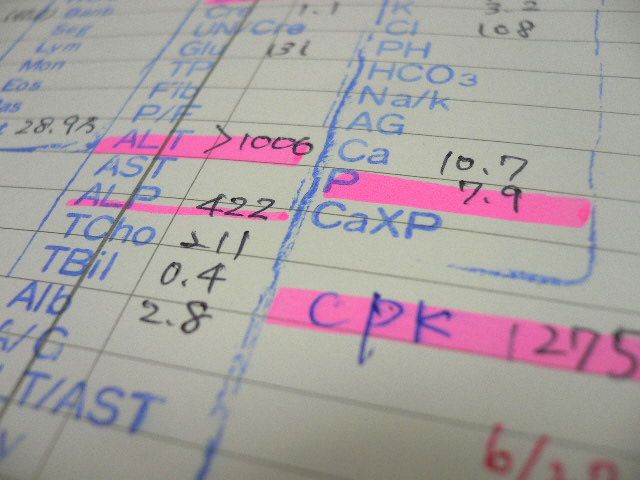 Seg
Lym
Mon
Eos
28.9%
Cr 1.1
UN/Cre
Glu 131
TP
Fib
P/F
ALT >1006
AST
ALP 422
TCho 211
TBil 0.4
Alb 2.8
A/G
T/AST
K 3.2
Cl 108
PH
HCO3
Na/k
AG
Ca 10.7
P 7.9
CaXP
CPK 1275
6/27